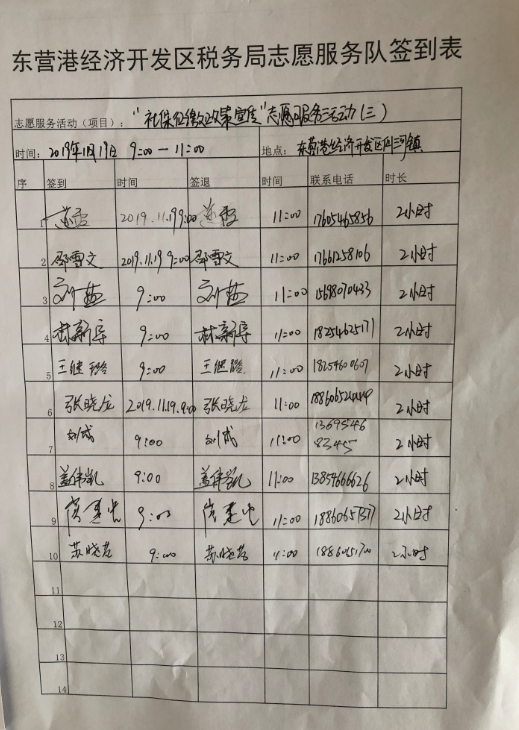 东营港经济开发区税务局志愿服务队签到表
志愿服务活动（项目）： “社保征缴政策宣传”志愿服务活动(三)
时间：2019年11月19日 9:00—11:00 地点：东营港经济开发区仙河镇
序 签到 时间 签退 时间 联系电话 时长
1 2019.11.19 9:00 11:00 17605465856 2小时
2 邵雪文 2019.11.19 9:00 邵雪文 11:00 17661258106 2小时
3 9:00 11:00 15698070433 2小时
4 林新导 9:00 林新导 11:00 18254625171 2小时
5 王继璐 9:00 王继璐 11:00 18254600607 2小时
6 张晓龙 2019.11.19.9:00 张晓龙 11:00 2小时
7 刘成 9:00 刘成 11:00 1369546
83455 2小时
8 盖伟凯 9:00 盖伟凯 11:00 13854666626 2小时
9 9:00 11:00 2小时
10 苏晓茗 9:00 苏晓茗 11:00 2小时
11
12
13
14